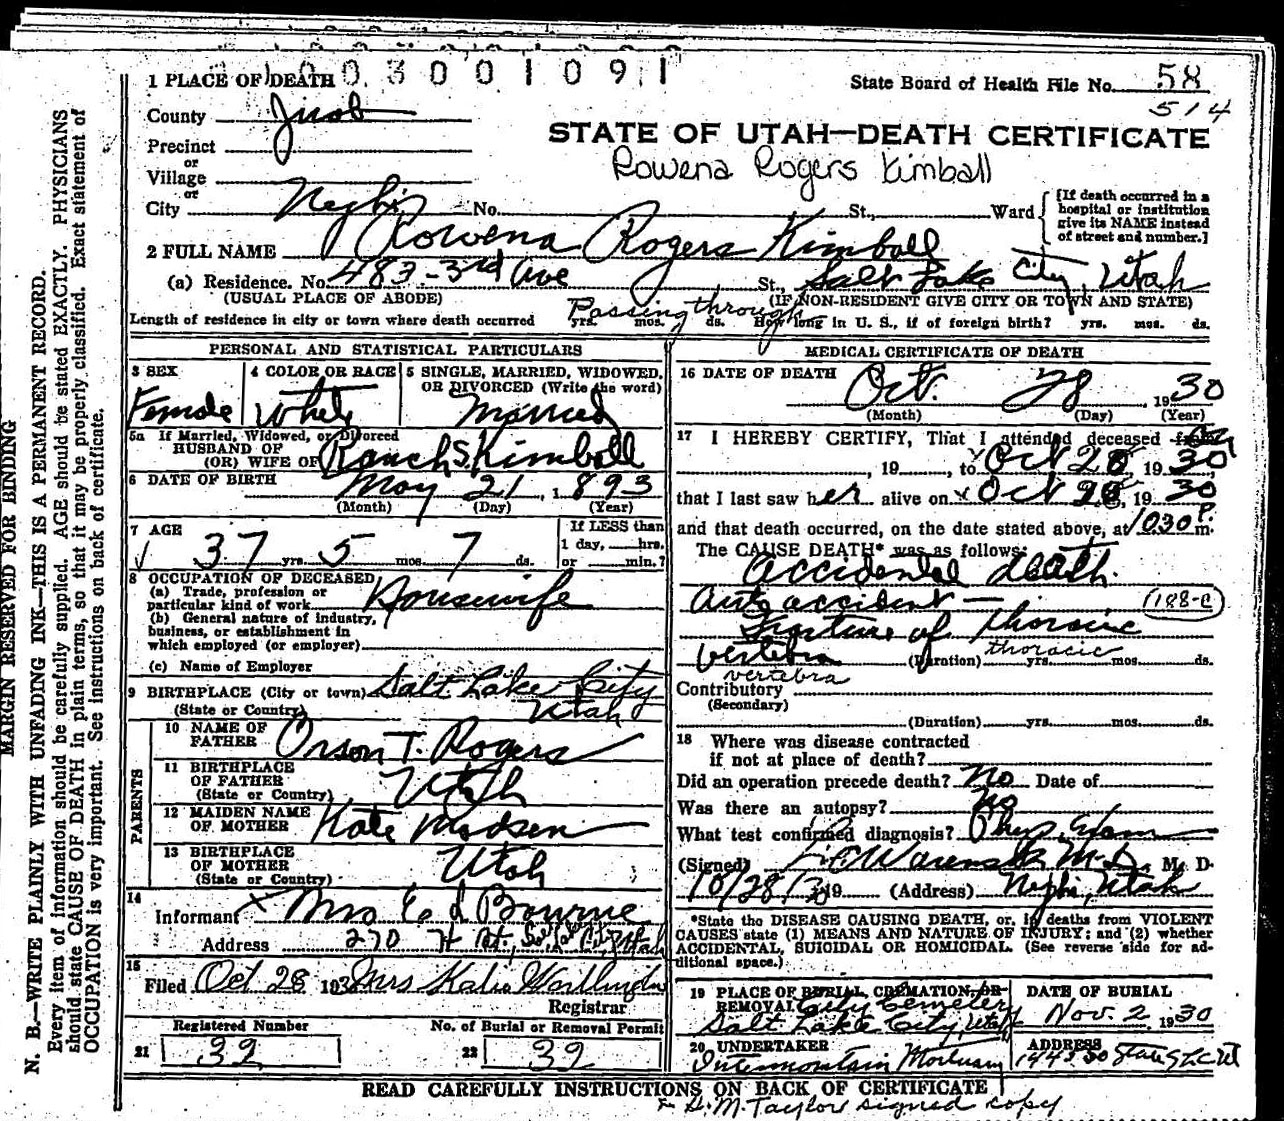 1003001091
State Board of Health File No. 58
514
1 PLACE OF DEATH
County Juab
STATE OF UTAH—DEATH CERTIFICATE
Precinct
or
Rowena Rogers Kimball
Village
or
City Nephi No. St., Ward
[If death occurred in a hospital or institution give its NAME instead of street and number.]
2 FULL NAME Rowena Rogers Kimball
(a) Residence. No. 483-3rd Ave St., Salt Lake City, Utah
(USUAL PLACE OF ABODE) (IF NON-RESIDENT GIVE CITY OR TOWN AND STATE)
Length of residence in city or town where death occurred Passing through yrs. mos. ds. How long in U. S., if of foreign birth? yrs. mos. ds.
PERSONAL AND STATISTICAL PARTICULARS
3 SEX
Female
4 COLOR OR RACE
White
5 SINGLE, MARRIED, WIDOWED,
OR DIVORCED (Write the word)
Married
5a If Married, Widowed, or Divorced
HUSBAND OF
(OR) WIFE OF Ranch S. Kimball
6 DATE OF BIRTH May 21, 1893
(Month) (Day) (Year)
7 AGE
37 yrs. 5 mos. 7 ds.
If LESS than
1 day, hrs.
or min.?
8 OCCUPATION OF DECEASED
(a) Trade, profession or
particular kind of work Housewife
(b) General nature of industry,
business, or establishment in
which employed (or employer)
(c) Name of Employer
9 BIRTHPLACE (City or town) Salt Lake City
(State or Country) Utah
PARENTS
10 NAME OF
FATHER Orson T. Rogers
11 BIRTHPLACE
OF FATHER
(State or Country) Utah
12 MAIDEN NAME
OF MOTHER Kate Madsen
13 BIRTHPLACE
OF MOTHER
(State or Country) Utah
14
Informant Mrs Ed Bourne
Address 270 H St., Salt Lake City, Utah
15
Filed Oct 28 1930 Mrs Katie
Registrar
Registered Number
21 32
No. of Burial or Removal Permit
22 32
MEDICAL CERTIFICATE OF DEATH
16 DATE OF DEATH Oct. 28, 1930
(Month) (Day) (Year)
17 I HEREBY CERTIFY, That I attended deceased from on
, 19 , to Oct 28, 1930
that I last saw her alive on Oct 28, 1930
and that death occurred, on the date stated above, at 1030 P. m.
The CAUSE DEATH* was as follows:
Accidental death.
Auto accident — (188-c)
Fracture of thoracic
vertebra (Duration) thoracic yrs. mos. ds.
vertebra
Contributory
(Secondary)
(Duration) yrs. mos. ds.
18 Where was disease contracted
if not at place of death?
Did an operation precede death? No Date of
Was there an autopsy? No
What test confirmed diagnosis? Phys. Exam
(Signed) M.D., M. D.
10/28/30 19 (Address) Nephi, Utah
*State the DISEASE CAUSING DEATH, or, in deaths from VIOLENT
CAUSES state (1) MEANS AND NATURE OF INJURY; and (2) whether
ACCIDENTAL, SUICIDAL OR HOMICIDAL. (See reverse side for additional space.)
19 PLACE OF BURIAL, CREMATION, OR
REMOVAL City Cemetery
Salt Lake City, Utah
DATE OF BURIAL
Nov. 2 1930
20 UNDERTAKER
Intermountain Mortuary
ADDRESS
State Street
READ CAREFULLY INSTRUCTIONS ON BACK OF CERTIFICATE
H. M. Taylor signed copy
MARGIN RESERVED FOR BINDING
N. B.—WRITE PLAINLY WITH UNFADING INK—THIS IS A PERMANENT RECORD.
Every item of information should be carefully supplied. AGE should be stated EXACTLY. PHYSICIANS
should state CAUSE OF DEATH in plain terms, so that it may be properly classified. Exact statement of
OCCUPATION is very important. See instructions on back of certificate.